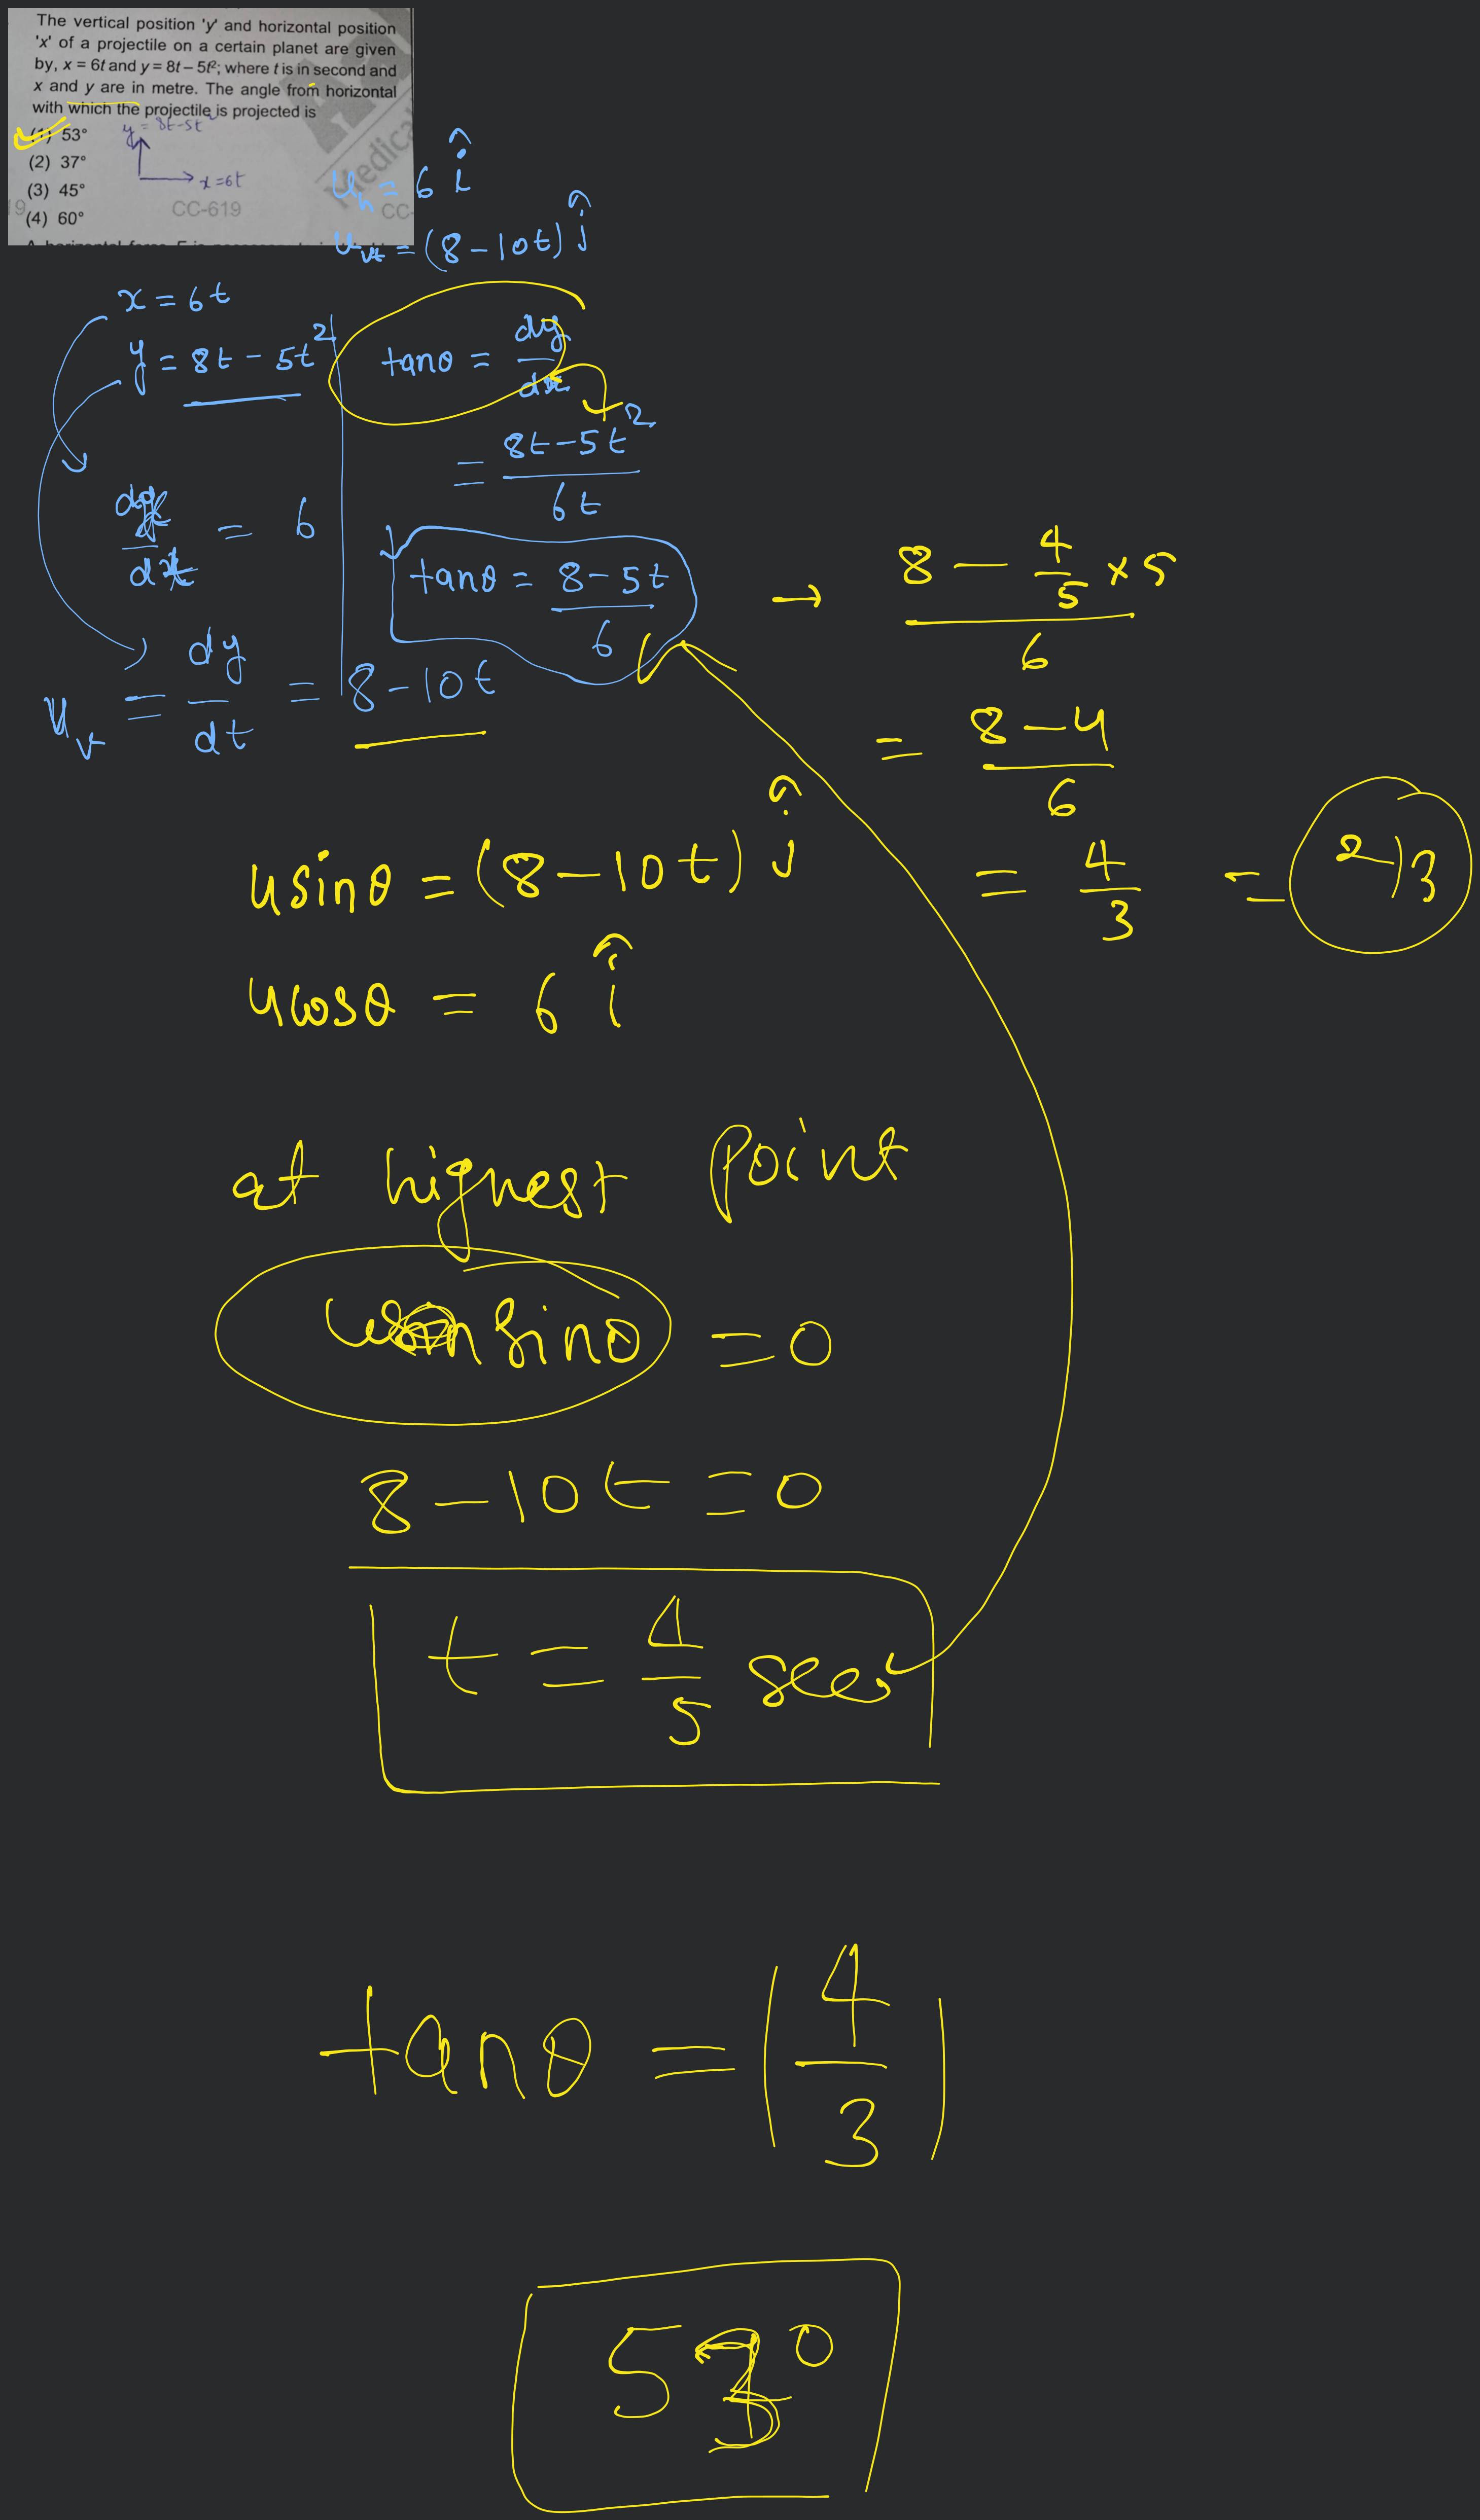 The vertical position 'y' and horizontal position
'x' of a projectile on a certain planet are given
by, x = 6t and y = 8t – 5t²; where t is in second and
x and y are in metre. The angle from horizontal
with which the projectile is projected is
(1) 53°
(2) 37°
(3) 45°
(4) 60°
y = 8t-5t²
x = 6t
CC-619
CC-
19
Medica
u_h = 6 î
= (8-10t) ĵ
x = 6t
y = 8t - 5t²
= 6
u_v = dy/dt = 8-10t
tanθ = dy/dx
= (8t-5t²)/6t
tanθ = (8-5t)/6
→ (8 - 4/5 × 5)/6
= (8-4)/6
= 4/3 = 2/3
usinθ = (8-10t) ĵ
ucosθ = 6 î
at highest point
sinθ = 0
8-10t = 0
t = 4/5 sec
tanθ = (4/3)
53°